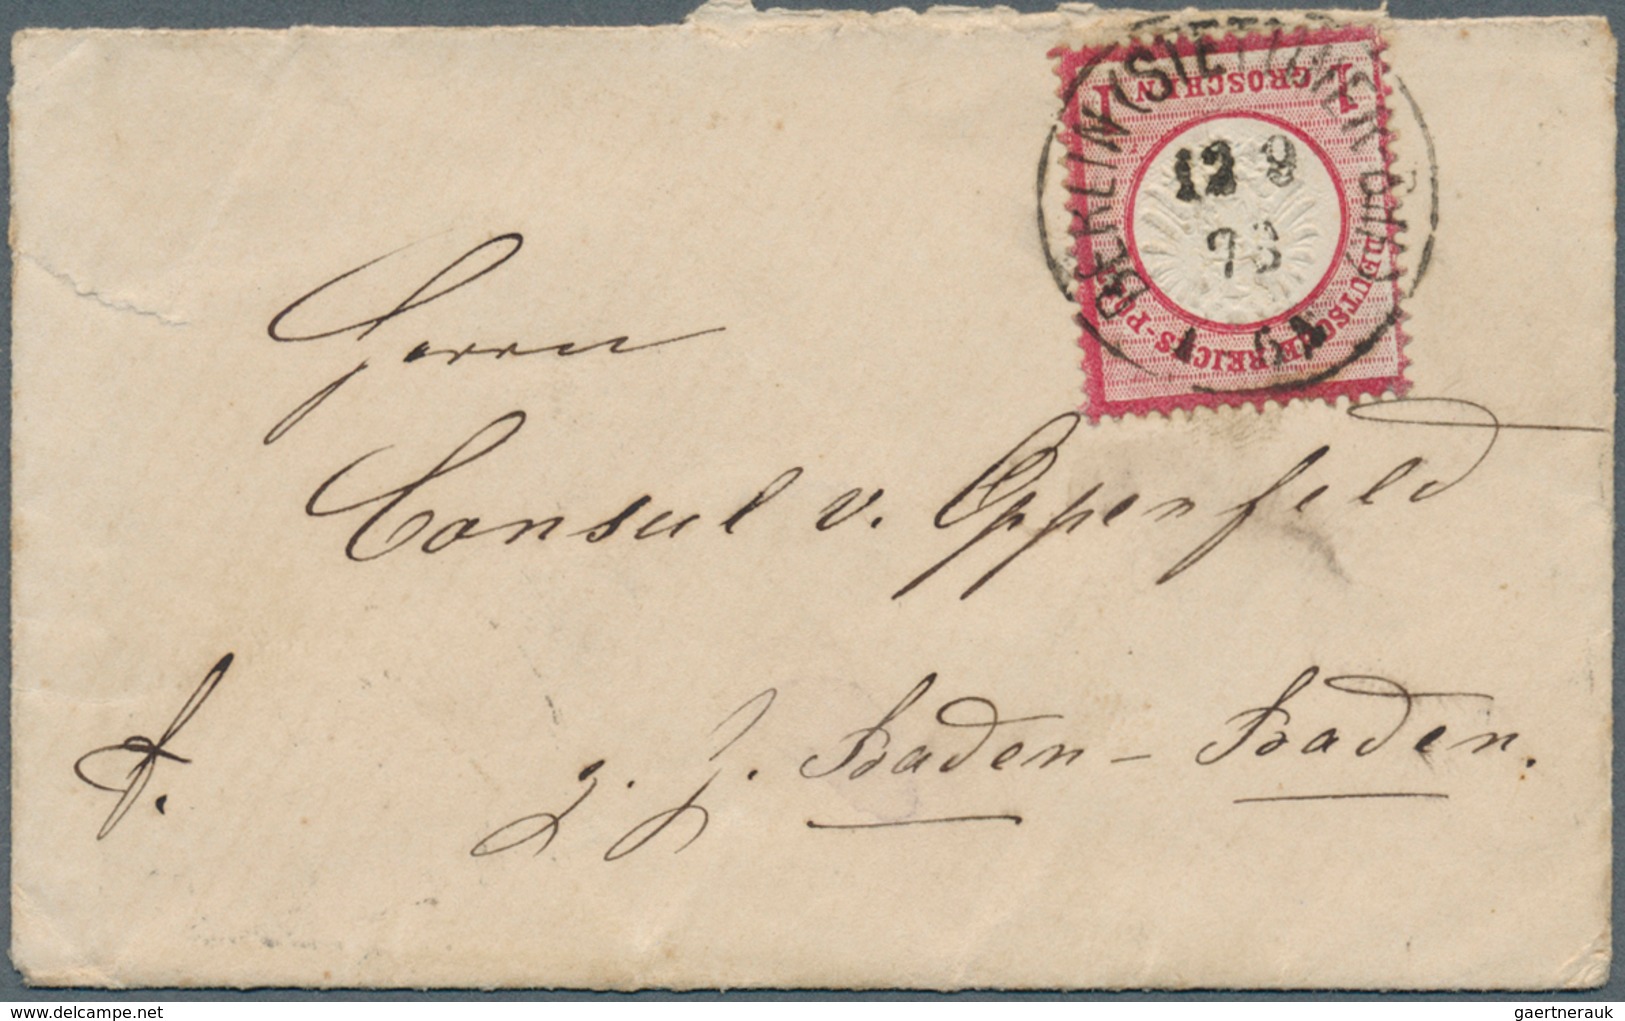 1 GROSCHEN 1
DEUTSCHE REICHS-P
BERLIN (STETTINER-BHF)
12 9
73
Herrn
Consul v. Oppenfeld
z. Z. Baden-Baden.
delcampe.net
gaertnerauk